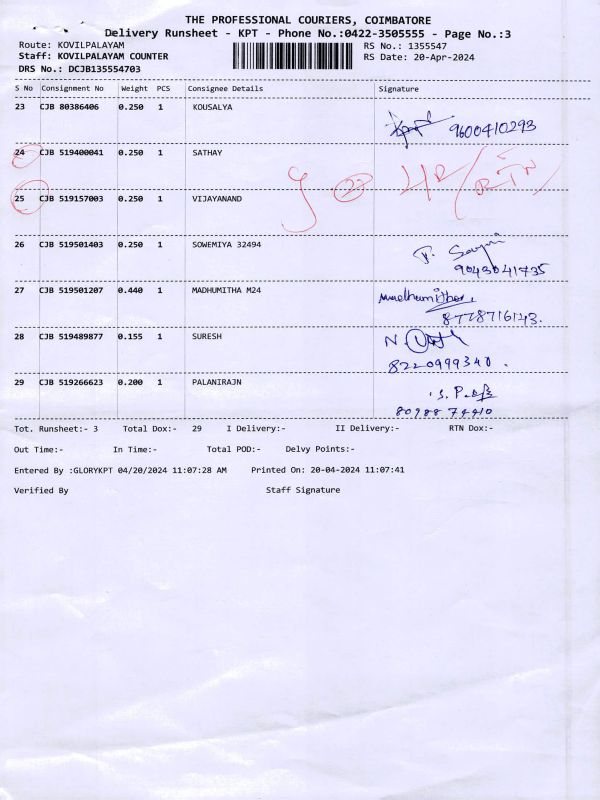 THE PROFESSIONAL COURIERS, COIMBATORE
Delivery Runsheet - KPT - Phone No.:0422-3505555 - Page No.:3
Route: KOVILPALAYAM RS No.: 1355547
Staff: KOVILPALAYAM COUNTER RS Date: 20-Apr-2024
DRS No.: DCJB135554703
S No Consignment No Weight PCS Consignee Details Signature
23 CJB 80386406 0.250 1 KOUSALYA
9600410293
24 CJB 519400041 0.250 1 SATHAY
25 CJB 519157003 0.250 1 VIJAYANAND
26 CJB 519501403 0.250 1 SOWEMIYA 32494
9043041735
27 CJB 519501207 0.440 1 MADHUMITHA M24 Madhumitha
8778716143.
28 CJB 519489877 0.155 1 SURESH
8220999340.
29 CJB 519266623 0.200 1 PALANIRAJN
Tot. Runsheet:- 3 Total Dox:- 29 I Delivery:- II Delivery:- RTN Dox:-
Out Time:- In Time:- Total POD:- Delvy Points:-
Entered By :GLORYKPT 04/20/2024 11:07:28 AM Printed On: 20-04-2024 11:07:41
Verified By Staff Signature